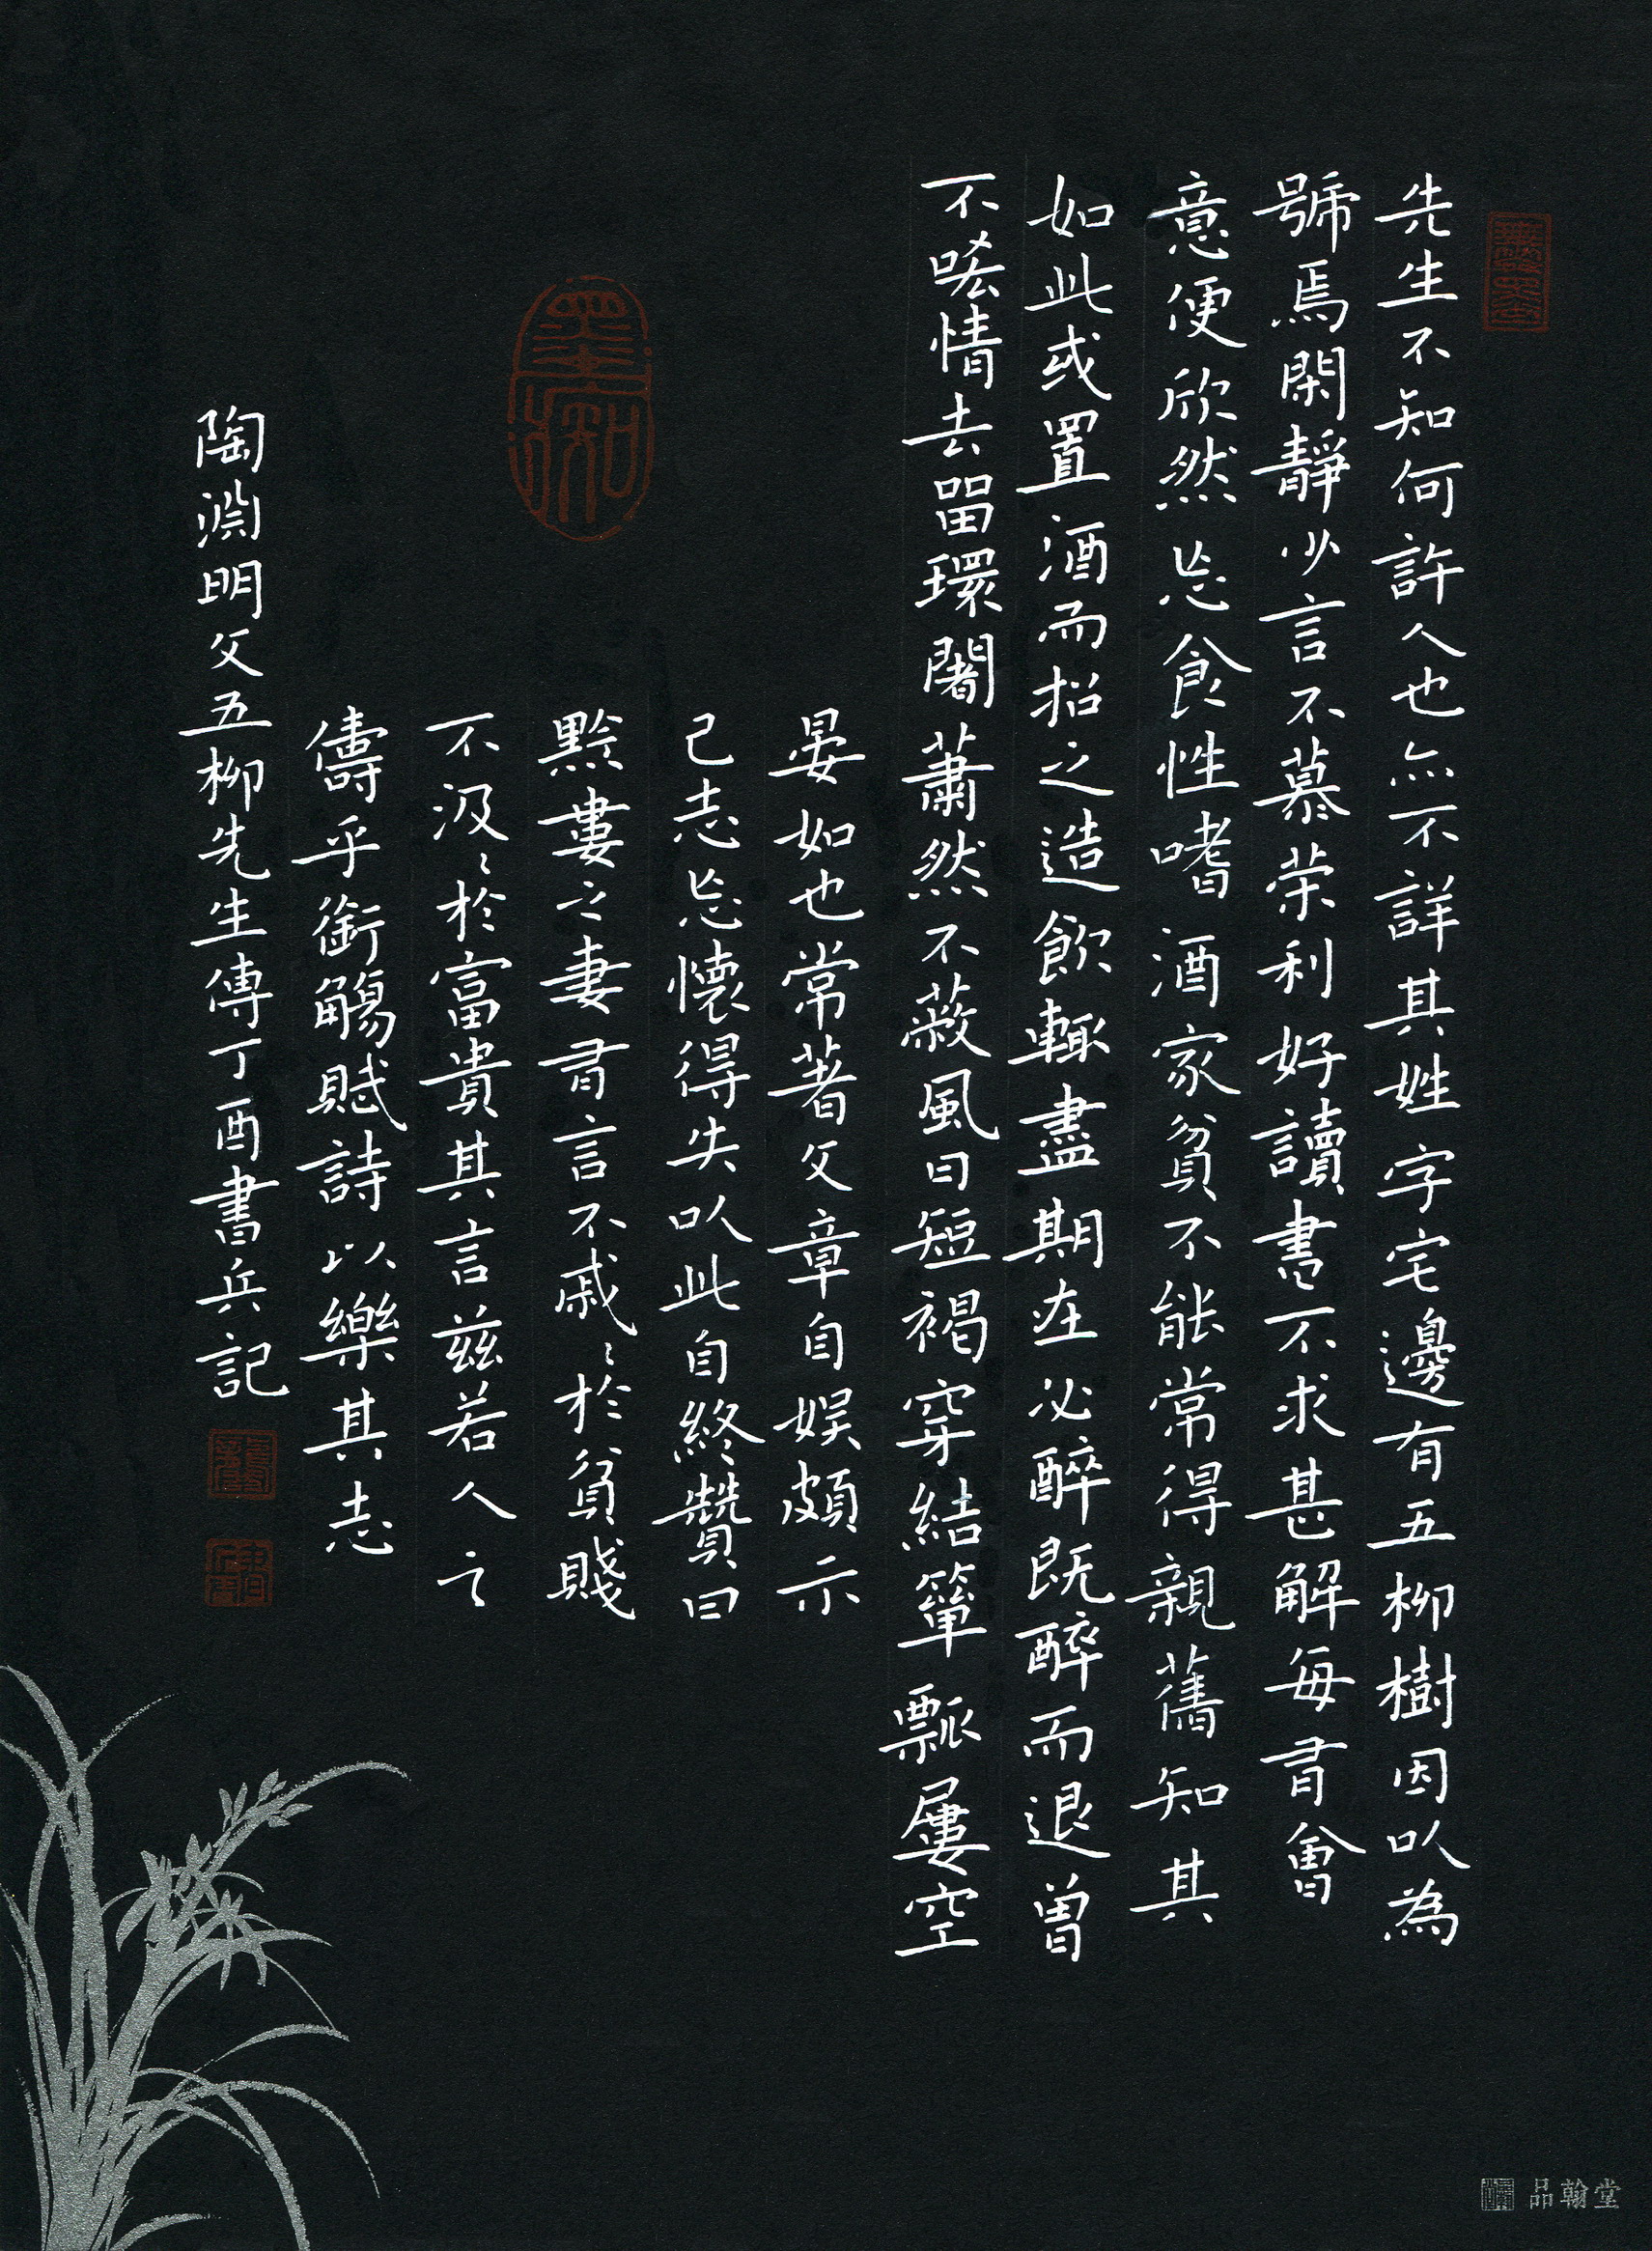 先生不知何許人也亦不詳其姓字宅邊有五柳樹因以為
號焉閑靜少言不慕荣利好讀書不求甚解每有會
意便欣然忘食性嗜酒家貧不能常得親舊知其
如此或置酒而招之造飲輒盡期在必醉既醉而退曾
不吝情去留環闍蕭然不蔽風日短褐穿結簞瓢屢空
晏如也常著文章自娱頗示
己志忘懷得失以此自終贊曰
黔婁之妻有言不戚〻於貧賤
不汲〻於富貴其言兹若人之
儔乎銜觴賦詩以樂其志
陶淵明文五柳先生傳丁酉書兵記
品翰堂